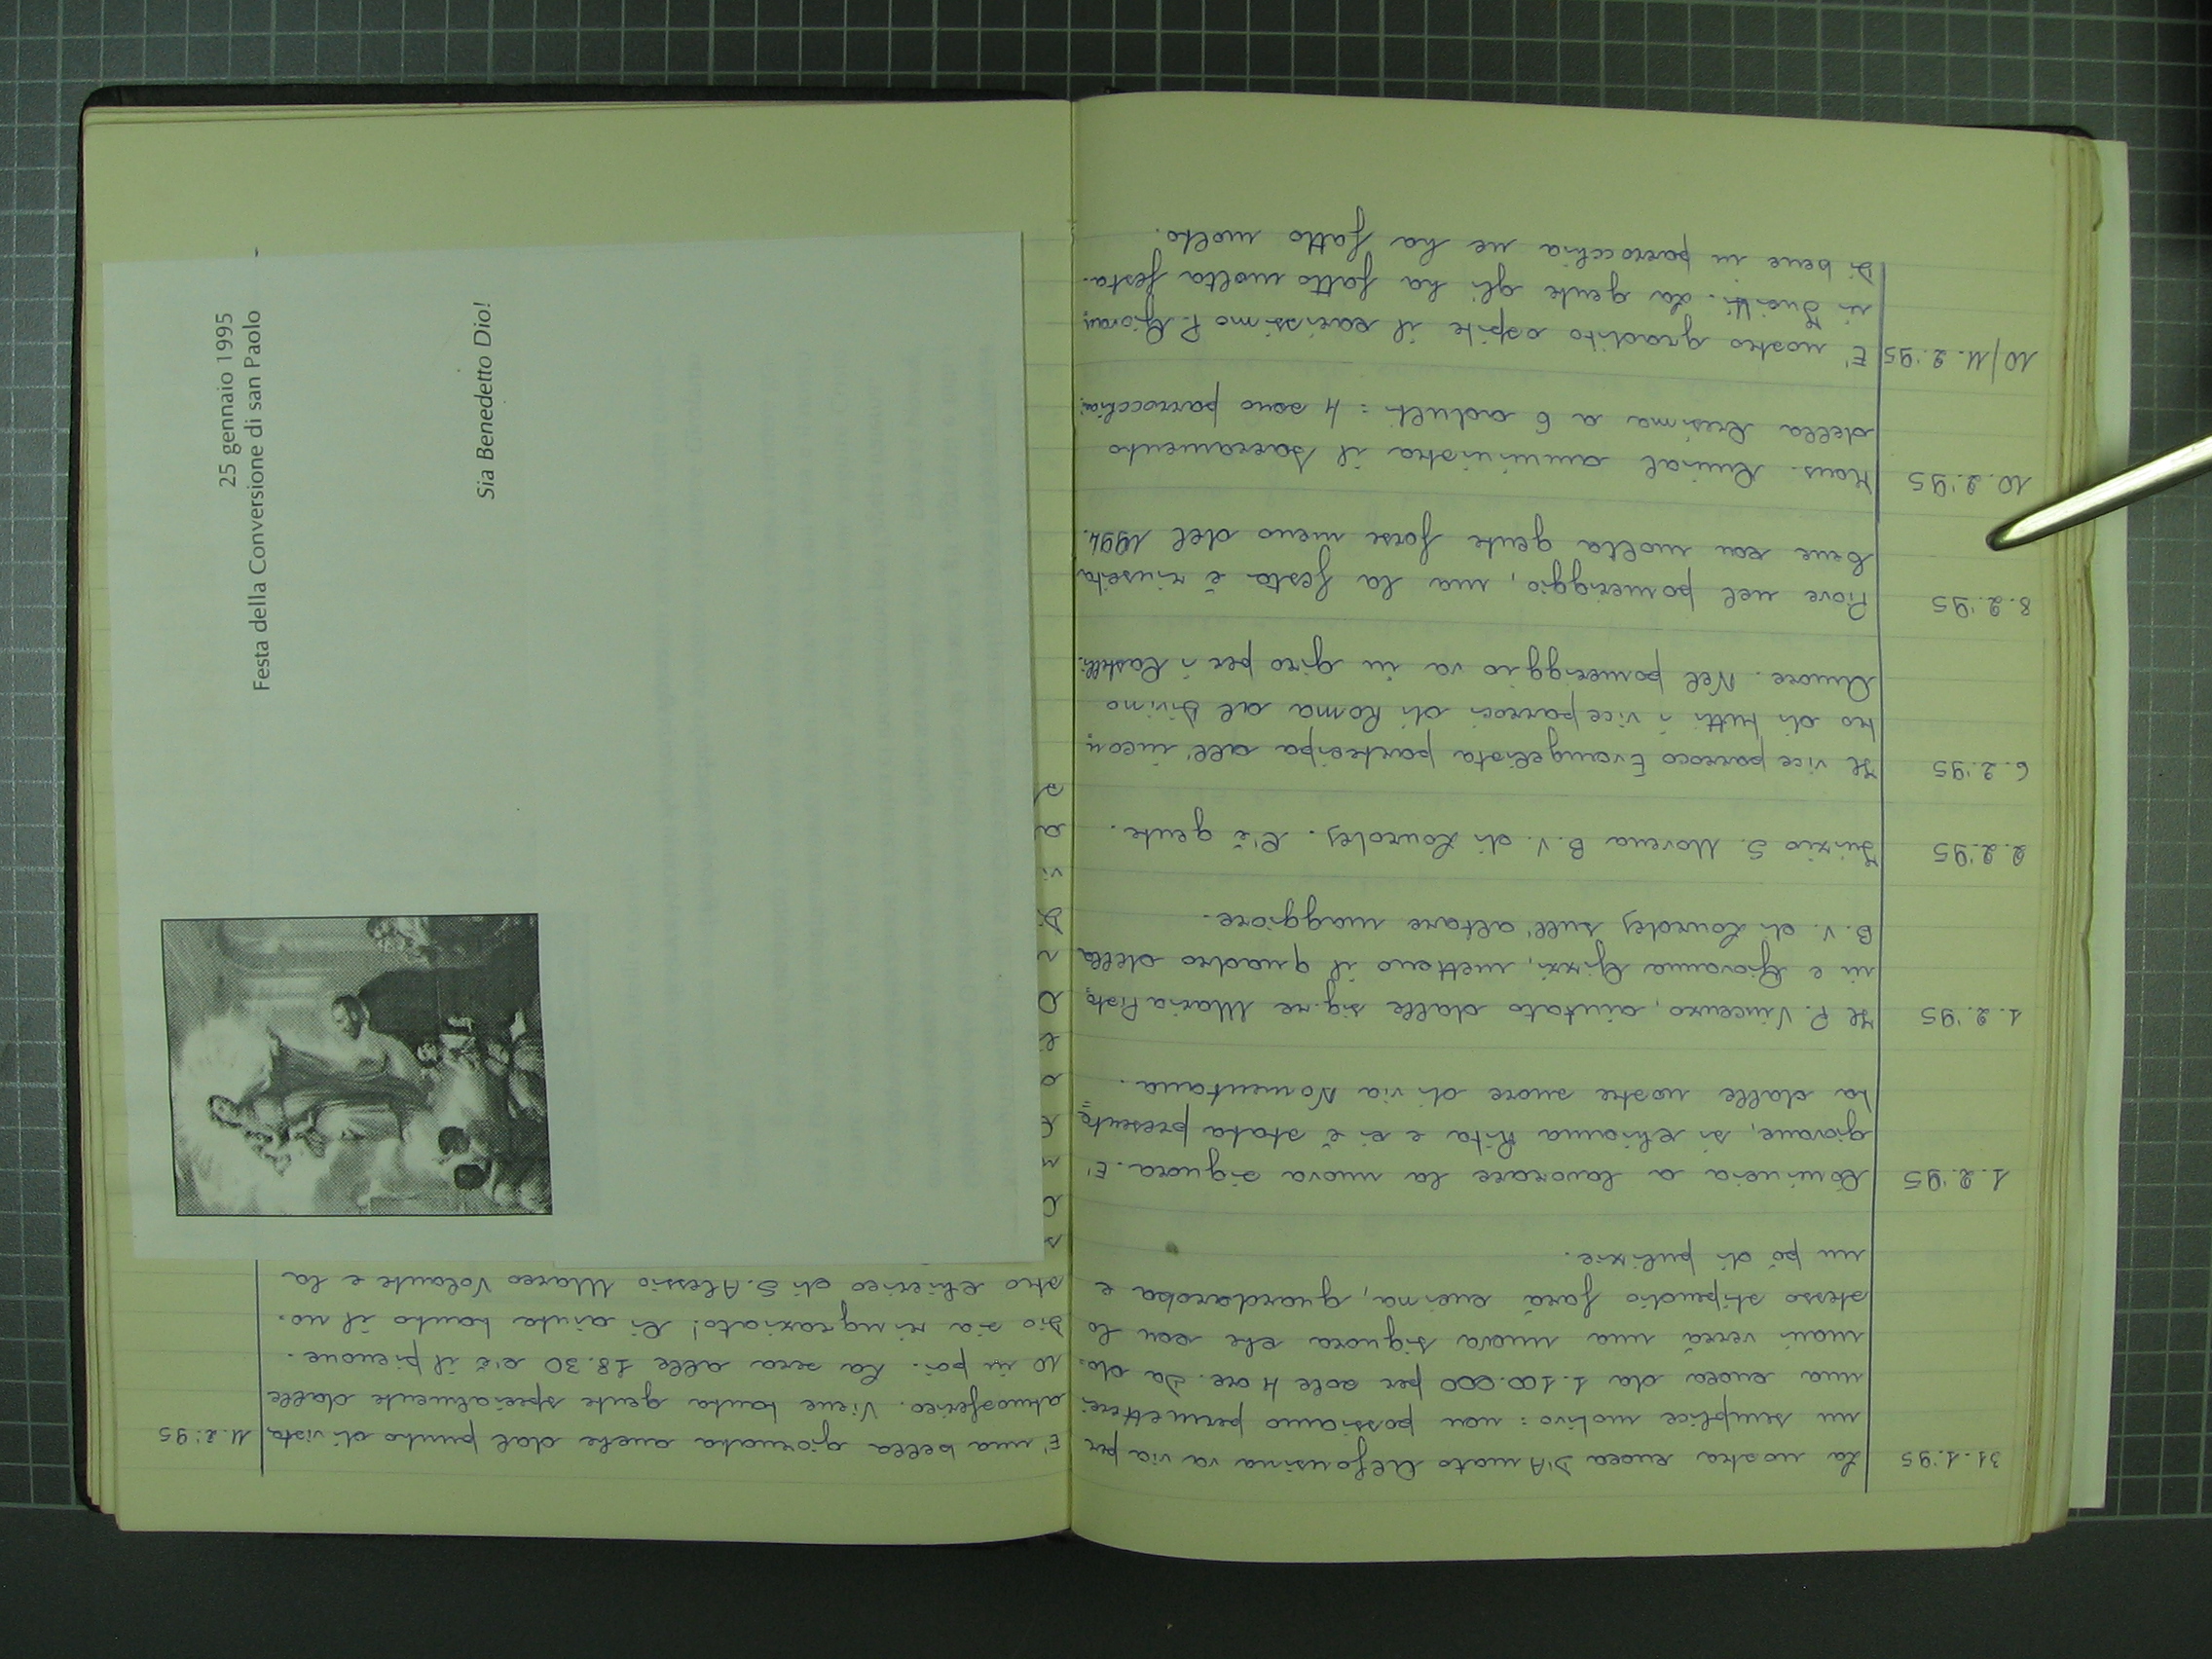 31.1.'95 La nostra cuoca D'Amato Alfonsina va via per
un semplice motivo: non possiamo permetterci
una cuoca da 1.100.000 per sole 4 ore. Da do=
mani verrà una nuova signora che con lo
stesso stipendio farà cucina, guardaroba e
un pò di pulizie.
1.2.'95 Comincia a lavorare la nuova signora. E'
giovane, si chiama Rita e ci è stata presenta=
ta dalle nostre suore di via Nomentana.
1.2.'95 Il P. Vincenzo, aiutato dalle sig.re Maria
ni e Giovanna mettono il quadro della
B.V. di Lourdes sull'altare maggiore.
2.2.'95 Inizio S. Novena B.V. di Lourdes. C'è gente.
6.2.'95 Il vice parroco Evangelista partecipa all'incon
tro di tutti i vice parroci di Roma al Divino
Amore. Nel pomeriggio va in giro per i Castelli.
8.2.'95 Piove nel pomeriggio, ma la festa è riuscita
bene con molta gente forse meno del 1994.
10.2.'95 Mons. amministra il Sacramento
della Cresima a 6 adulti: 4 sono parrocchiani
10/11.2.'95 E' nostro gradito ospite il carissimo P. Giovan
ni. La gente gli ha fatto molta festa.
Di bene in parrocchia ne ha fatto molto.
11.2.'95 E' una bella giornata anche dal punto di vista
atmosferico. Viene tanta gente specialmente dalle
10 in poi. La sera alle 18.30 c'è il pienone.
Dio sia ringraziato! Ci aiuta tanto il no=
stro chierico di S. Alessio Marco Volante e la
Sia Benedetto Dio!
25 gennaio 1995
Festa della Conversione di san Paolo